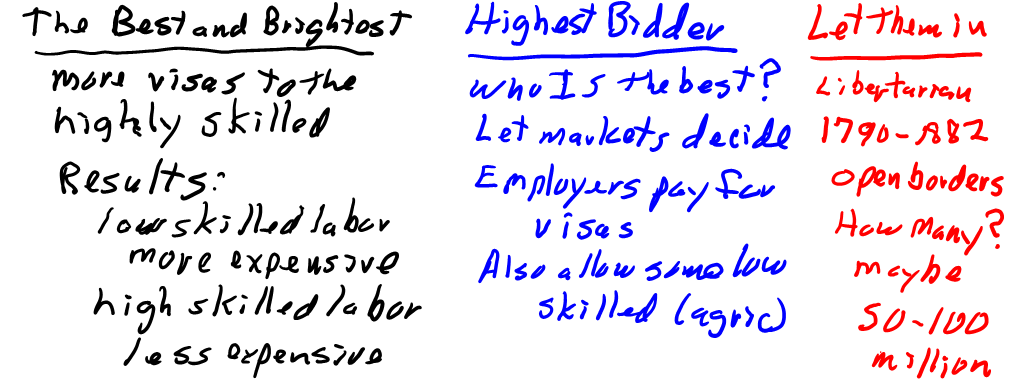 The Best and Brightest
more visas to the
highly skilled
Results:
low skilled labor
more expensive
high skilled labor
less expensive
Highest Bidder
Who Is the best?
Let markets decide
Employers pay for
visas
Also allow some low
skilled (agric)
Let Them in
Libertarian
1790-1882
open borders
How Many?
maybe
50-100
million